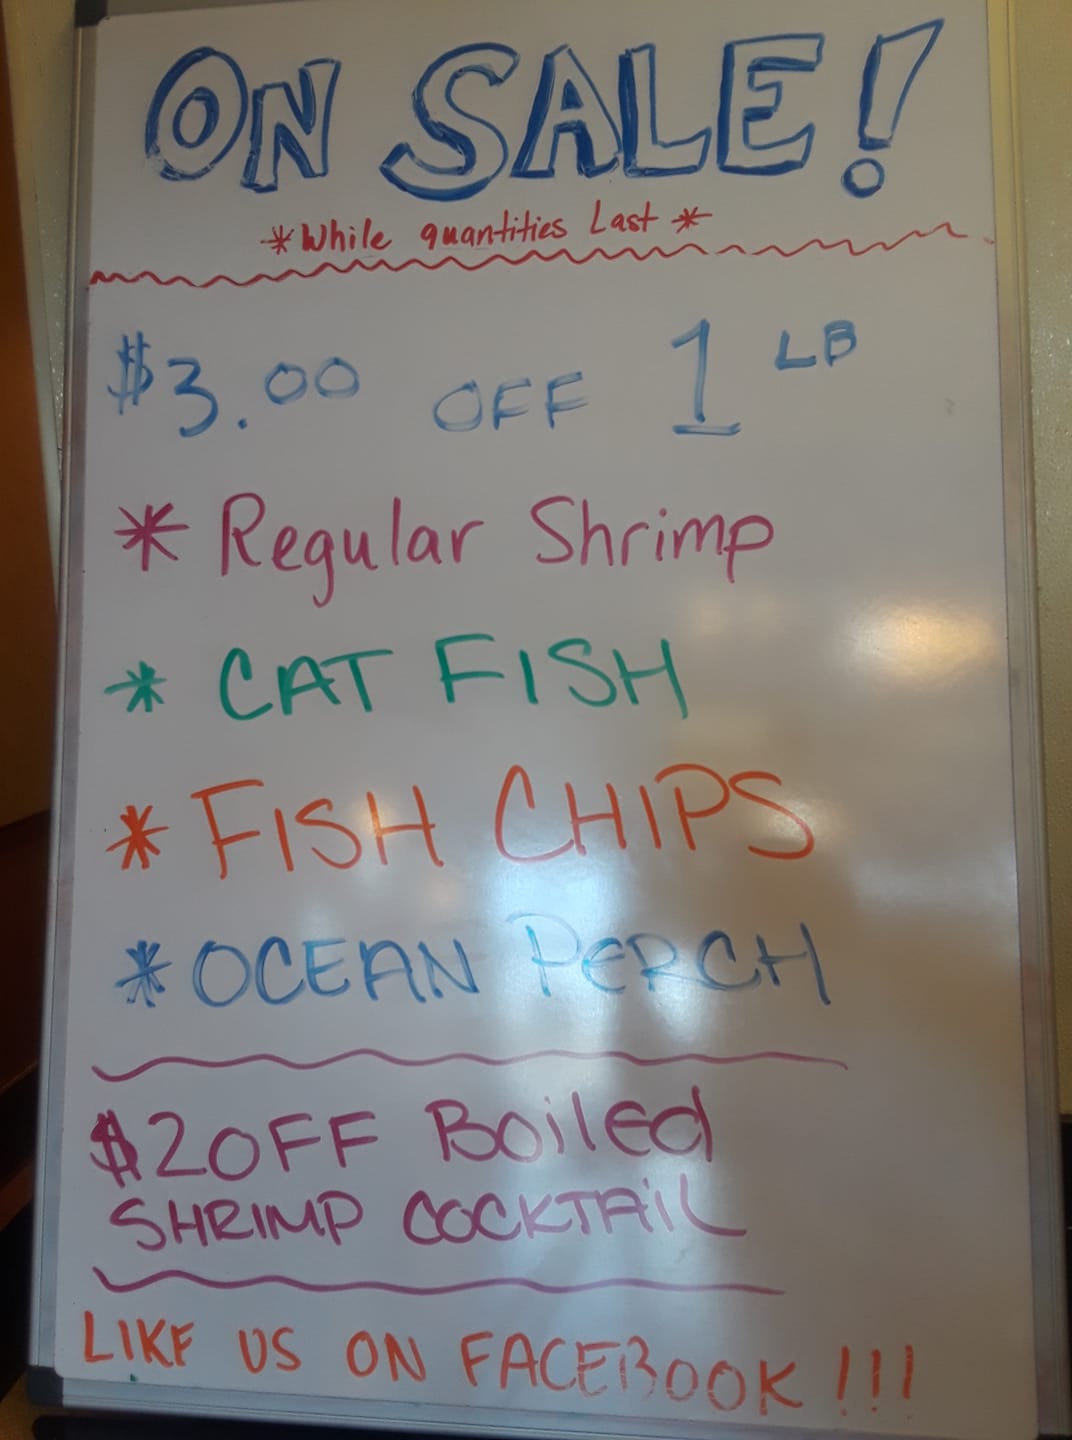 ON SALE!
*While quantities Last*
$3.00 OFF 1 LB
* Regular Shrimp
* CAT FISH
* FISH CHIPS
* OCEAN PERCH
$2 OFF Boiled
SHRIMP COCKTAiL
LIKE US ON FACEBOOK!!!